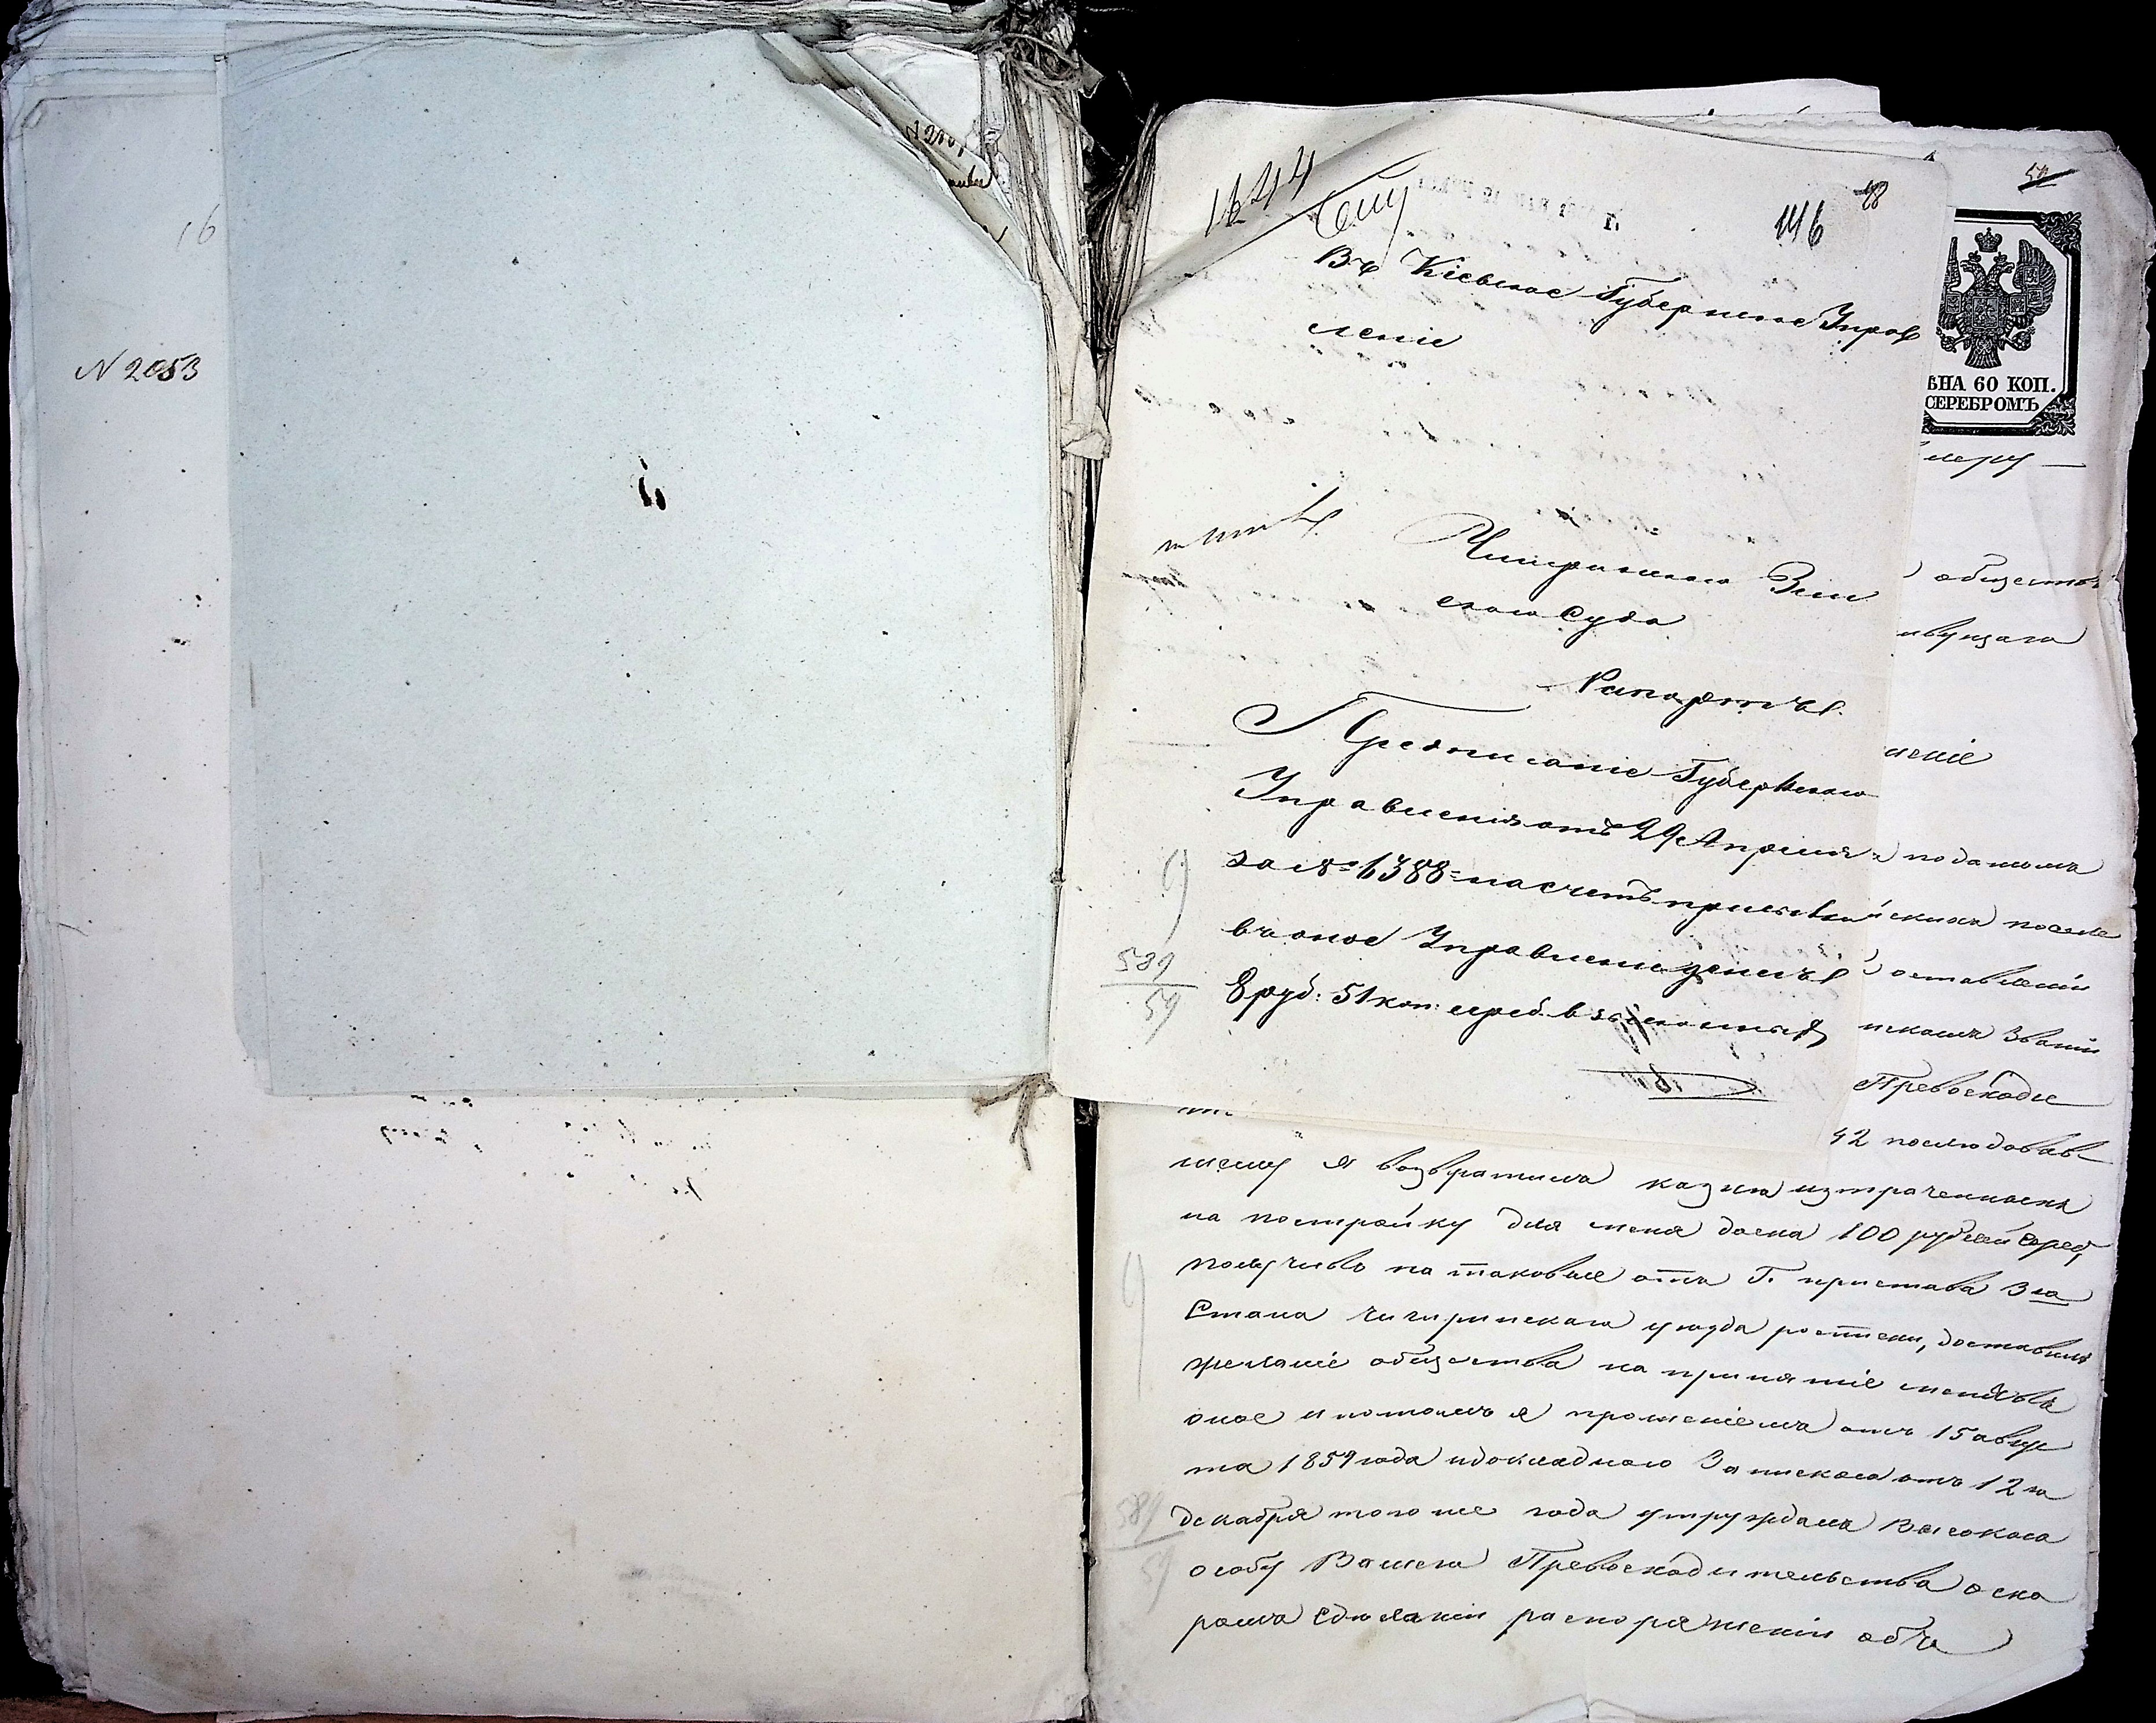 16
N 2053
1644
146
48
Въ Кіевское Губернское Управ
леніе
Чигиринскаго Зем
скаго Суда
Рапортъ.
Предписаніе Губернскаго
Управленія отъ 29 Апреля
за № 1388 = насчетъ присылки
въ оное Управленіе денегъ
8 руб: 51 коп: сереб. взысканныхъ
589
59
52
ѢНА 60 КОП.
СЕРЕБРОМЪ
общества
ивущаго
шеніе
поданнома
скихъ посел
оставленіи
искомъ званіи
Превосходи
42 последовав-
шему я возвратилъ казнѣ изтраченныхъ
на постройку для меня дома 100 рублей сереб,
получивъ на таковые отъ Г. пристава 3го
Стана Чигиринскаго уезда росписки, доставилъ
желаніе общества на принятіе меня въ
оное и потомъ я прошеніемъ отъ 15 авгус
та 1859 года и докладною Запискою отъ 12го
декабря того же года утруждалъ Высокою
особу Вашего Превосходительства о ско
ромъ сдѣланіи распоряженіи объ
589
59